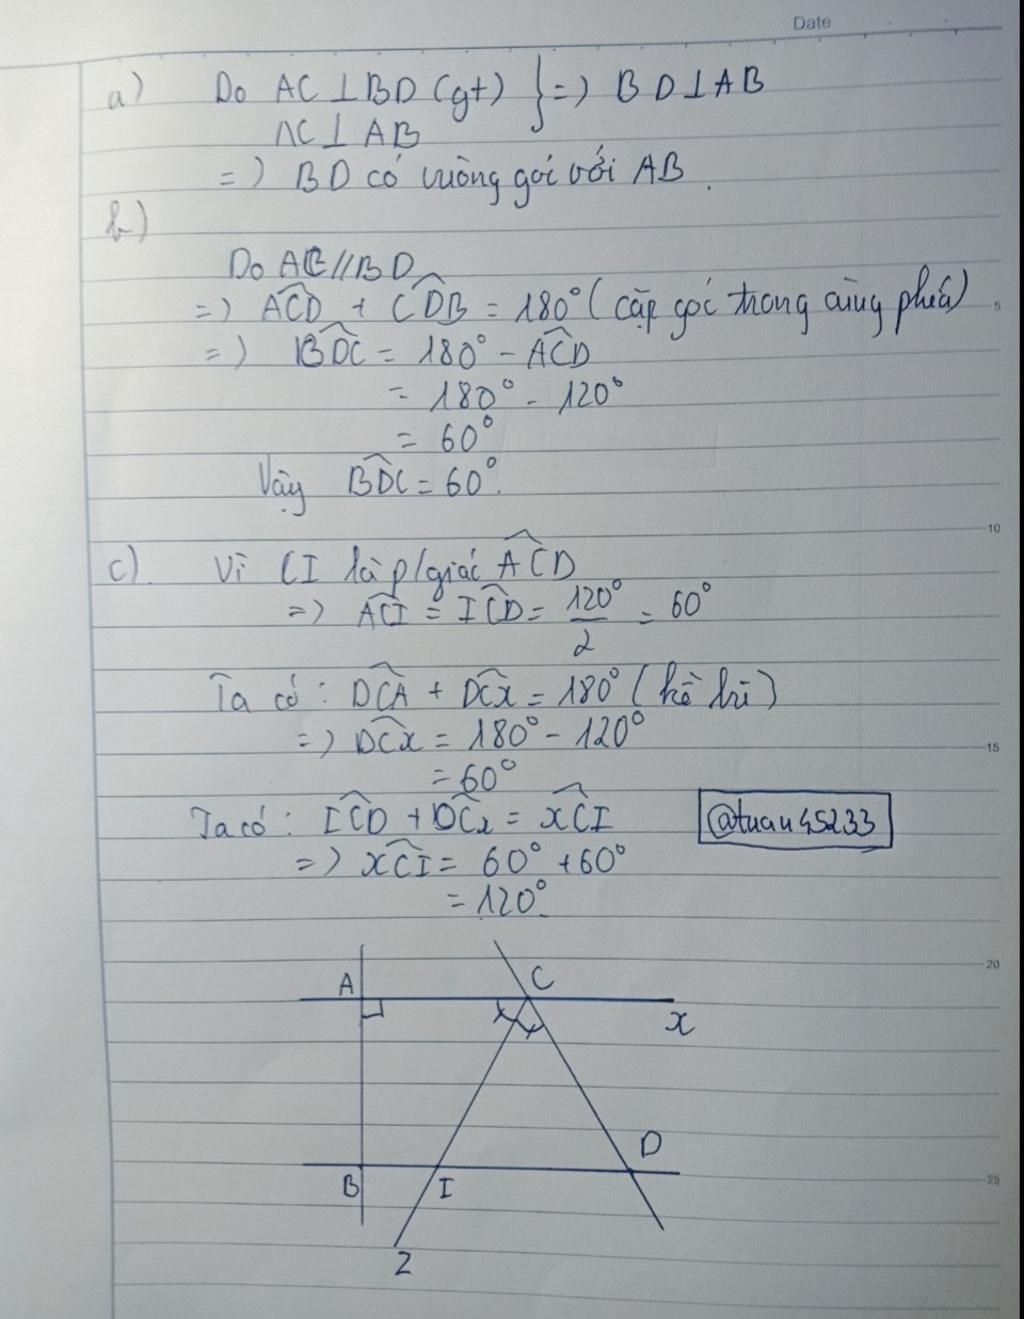 Date
a) Do AC⊥BD (gt) }=) BD⊥AB
AC⊥AB
=) BD có vuông góc với AB.
b)
Do AC//BD
=) ACD + CDB = 180° (cặp góc trong cùng phía)
=) BDC = 180° - ACD
= 180° - 120°
= 60°
Vậy BDC = 60°.
c). Vì CI là p/giác ACD
=) ACI = ICD = 120°/2 = 60°
Ta có: DCA + DCx = 180° (kề bù)
=) DCx = 180° - 120°
= 60°
Ta có: ICD + DCx = xCI
@tuan45233
=) xCI = 60° + 60°
= 120°.
A C
x
D
B I
Z
5
10
15
20
25